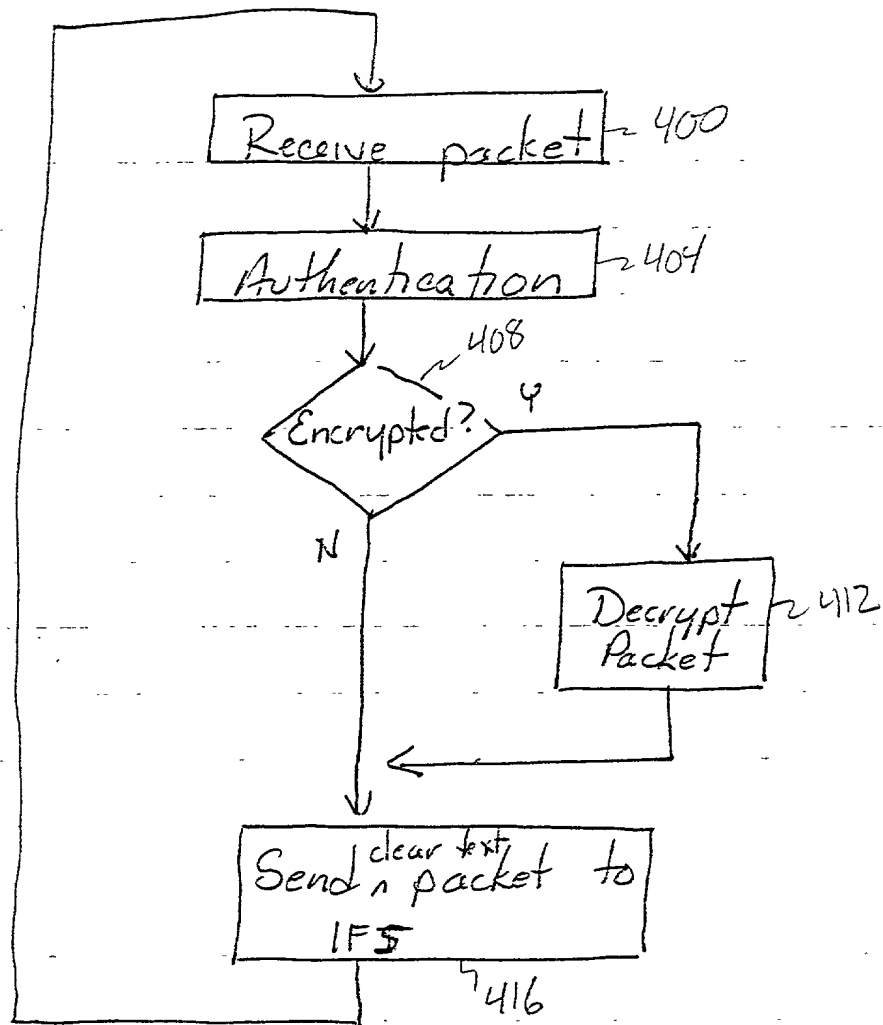 Receive packet
400
Authentication
404
408
Encrypted?
Y
N
Decrypt
Packet
412
clear text
Send ^ packet to
IFS
416